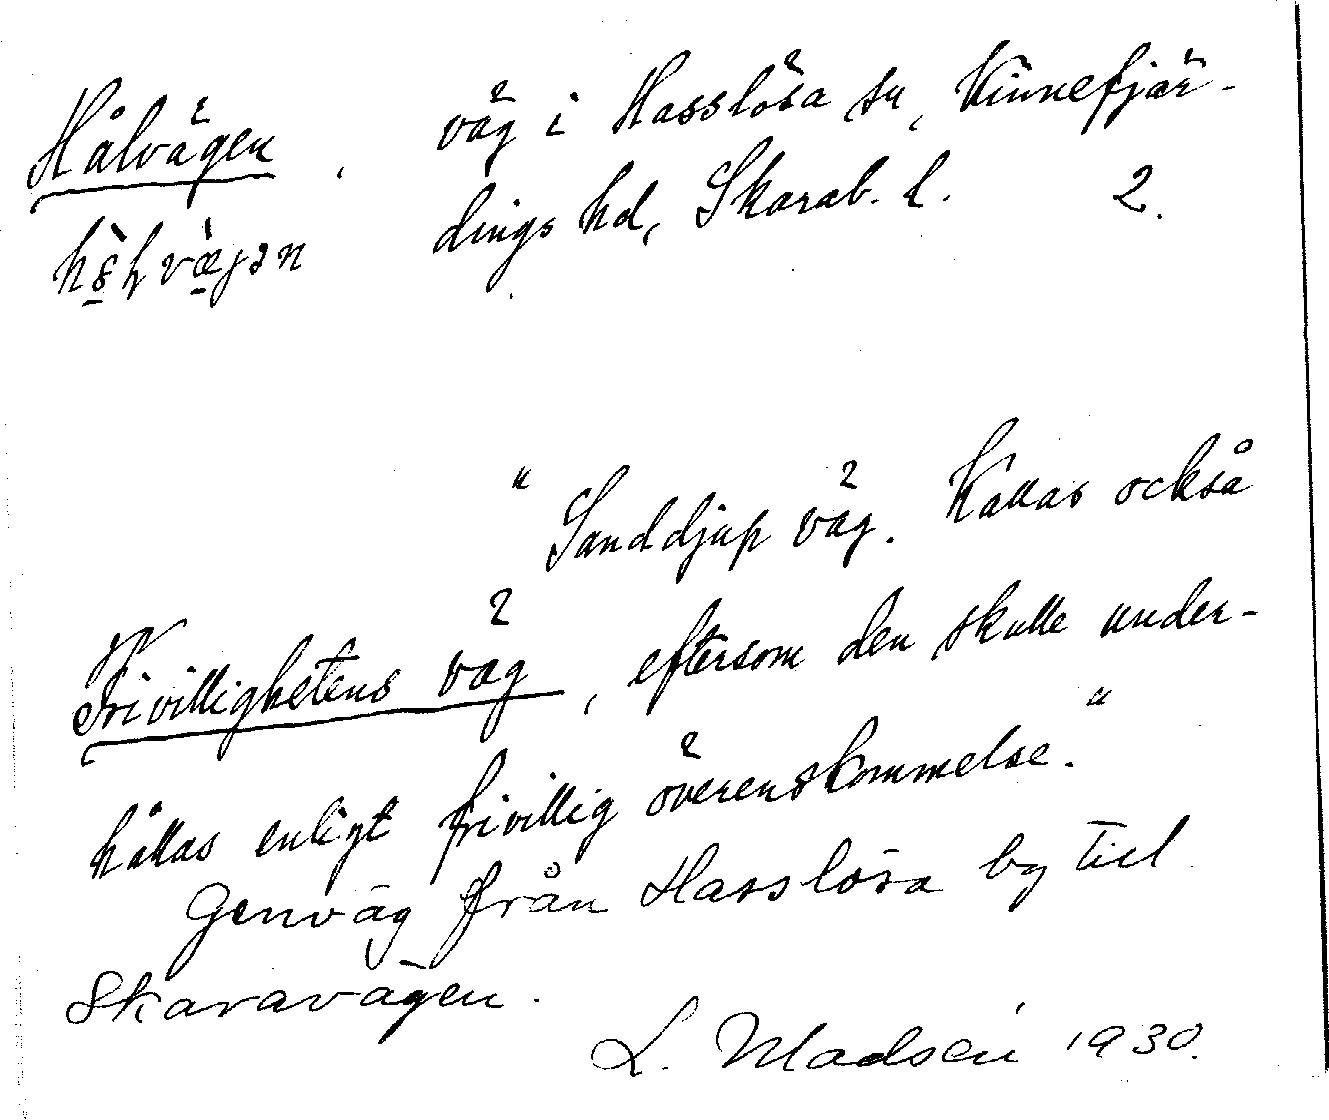 Hålvägen, väg i Hasslösa sn, Kinnefjär-
dings hd, Skarab. l. 2.
"Sanddjup väg. Kallas också
Frivillighetens väg, eftersom den skulle under-
hållas enligt frivillig överenskommelse."
Genväg från Hasslösa by till
Skaravägen.
L. Madsén 1930.